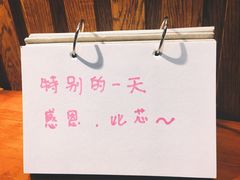 特别的一天
感恩.比芯～